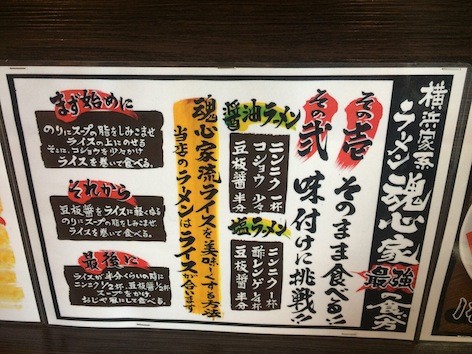 横浜家系
ラーメン魂心家
最強の食べ方
その壱
そのまま食べる!!
その弐
味付けに挑戦!!
醤油ラーメン
ニンニク一杯
コショウ少々
豆板醤半分
塩ラーメン
ニンニク一杯
酢レンゲ1/2杯
豆板醤半分
魂心家流ライスを美味しくする方法
当店のラーメンはライスが合います
まず始めに
のりにスープの脂をしみこませ
ライスの上にのせる
そこに、コショウを少々かけ
ライスを巻いて食べる。
それから
豆板醤をライスに軽くぬる
のりにスープの脂をしみこませ
ライスを巻いて食べる。
最後に
ライスが半分くらいの時に
ニンニク1/2杯、豆板醤1/2杯
スープをかけ、
おじや風にして食べる。